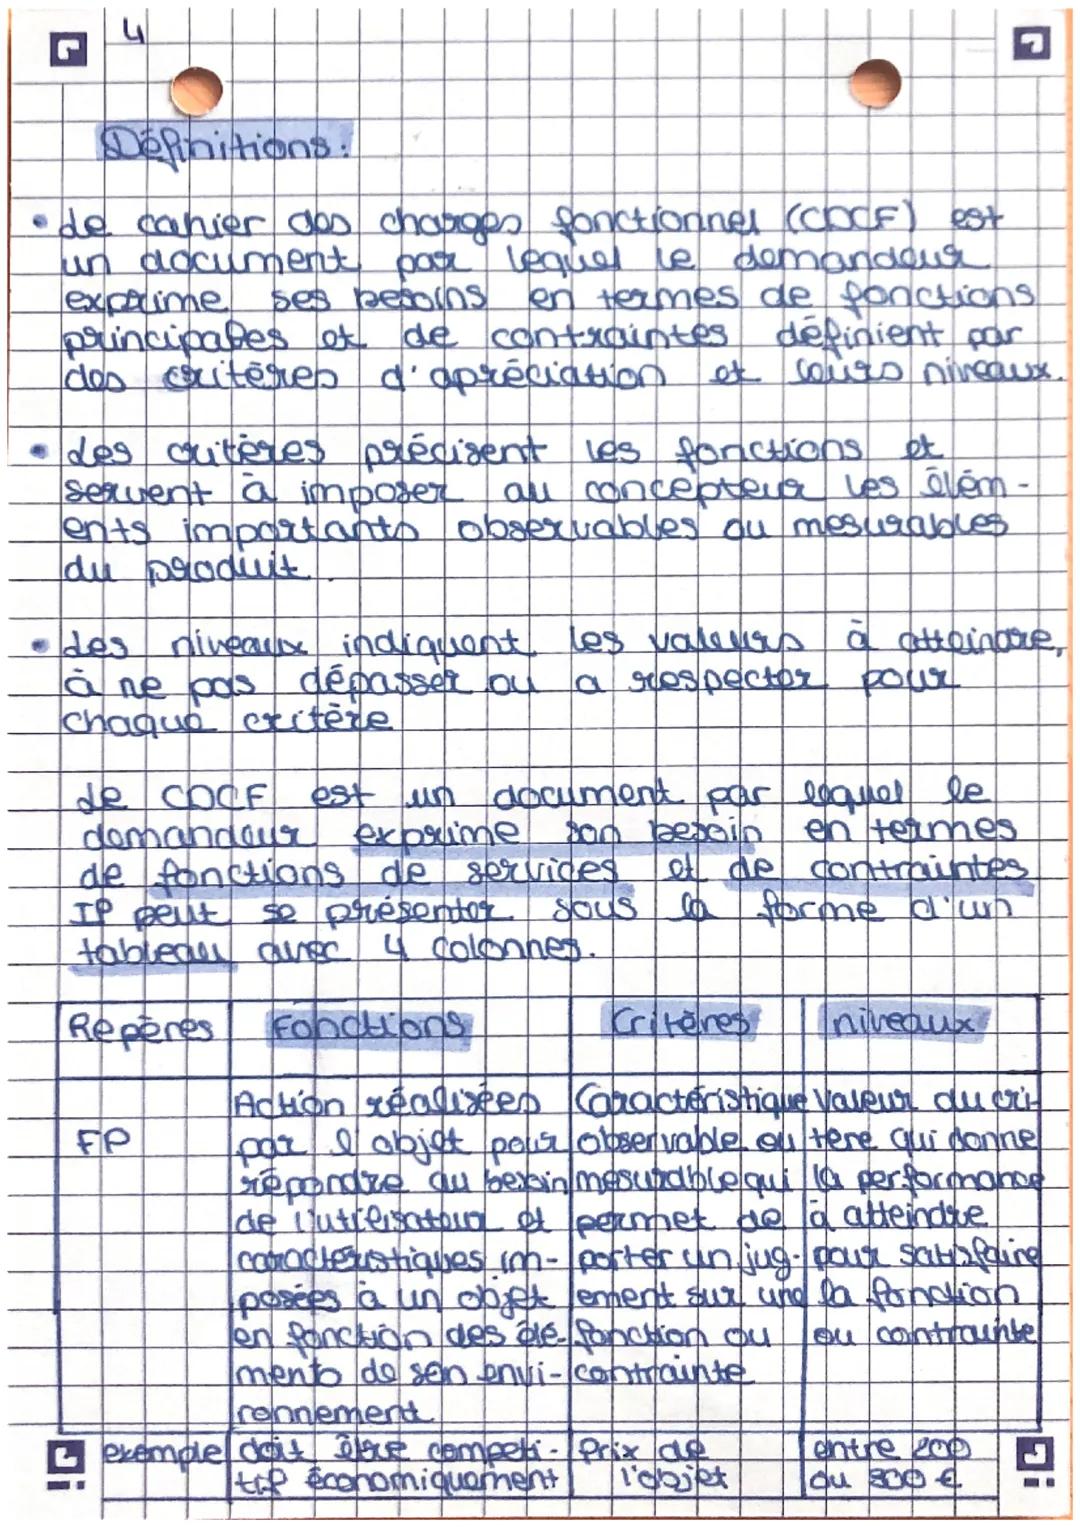 4
Définitions:
• Le cahier des charges fonctionnel (CDCF) est
un document par lequel le demandeur
exprime ses besoins en termes de fonctions
principales et de contraintes définient par
des critères d'apréciation et leurs niveaux.
• Les critères précisent les fonctions et
servent à imposer au concepteur les élém-
ents importants observables ou mesurables
du produit.
• Les niveaux indiquent les valeurs à atteindre,
à ne pas dépasser ou a respecter pour
chaque critère
Le CDCF est un document par lequel le
demandeur exprime son besoin en termes
de fonctions de services et de contraintes
Il peut se présenter sous la forme d'un
tableau avec 4 colonnes.
Repères Fonctions Critères niveaux
FP
Action réalisées
par l'objet pour
répondre au besoin
de l'utilisateur et
caractéristiques im-
posées à un objet
en fonction des élé-
ments de son envi-
ronnement
Caractéristique
observable ou
mesurable qui
permet de
porter un jug-
ement sur une
fonction ou
contrainte
Valeur du cri-
tère qui donne
la performance
à atteindre
pour satisfaire
la fonction
ou contrainte
exemple
doit être competi-
tif économiquement
Prix de
l'objet
entre 200
ou 300 €